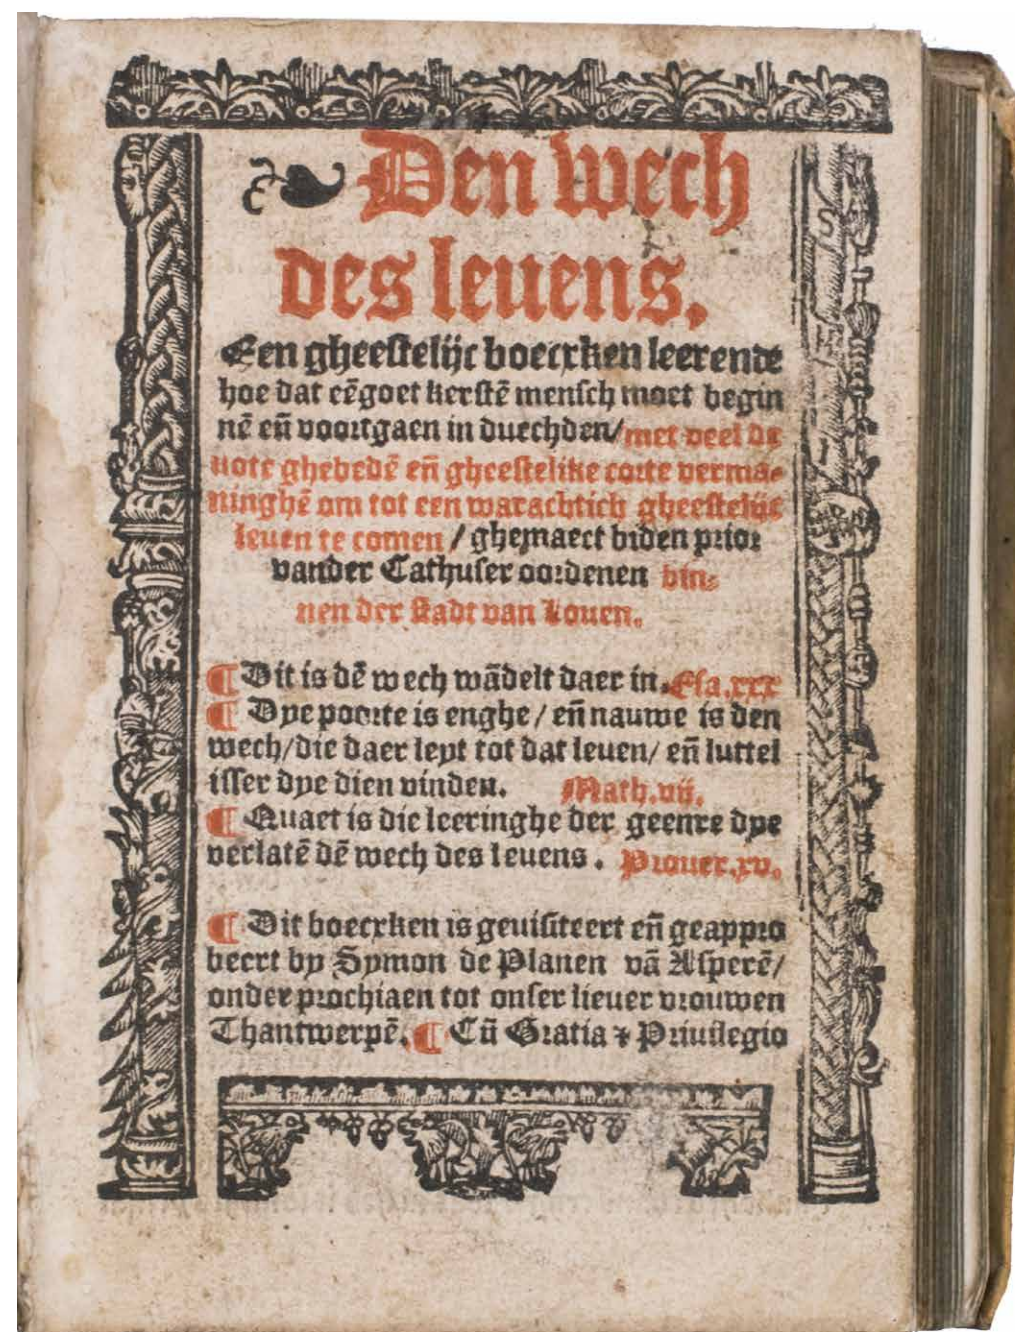 Den wech
des leuens.
Een gheestelijc boecxken leerende
hoe dat eē goet kerstē mensch moet begin
nē eñ voortgaen in duechden/met veel de
uote ghebedē eñ gheestelike corte verma-
ninghē om tot een warachtich gheestelijc
leuen te comen / ghemaect biden prior
vander Cathuser oordenen bin-
nen der stadt van Louen.
¶ Dit is dē wech wādelt daer in. Esa.xxx
¶ Dye poorte is enghe / eñ nauwe is den
wech/die daer leyt tot dat leuen/ eñ luttel
isser dye dien vinden. Math.vij.
¶ Quaet is die leeringhe der geenre dye
verlatē dē wech des leuens. Prouer.xv.
¶ Dit boecxken is geuisiteert eñ geappro
beert by Symon de Planen vā Asperē/
onder prochiaen tot onser lieuer vrouwen
Thantwerpē. ¶ Cū Gratia ⁊ Priuilegio